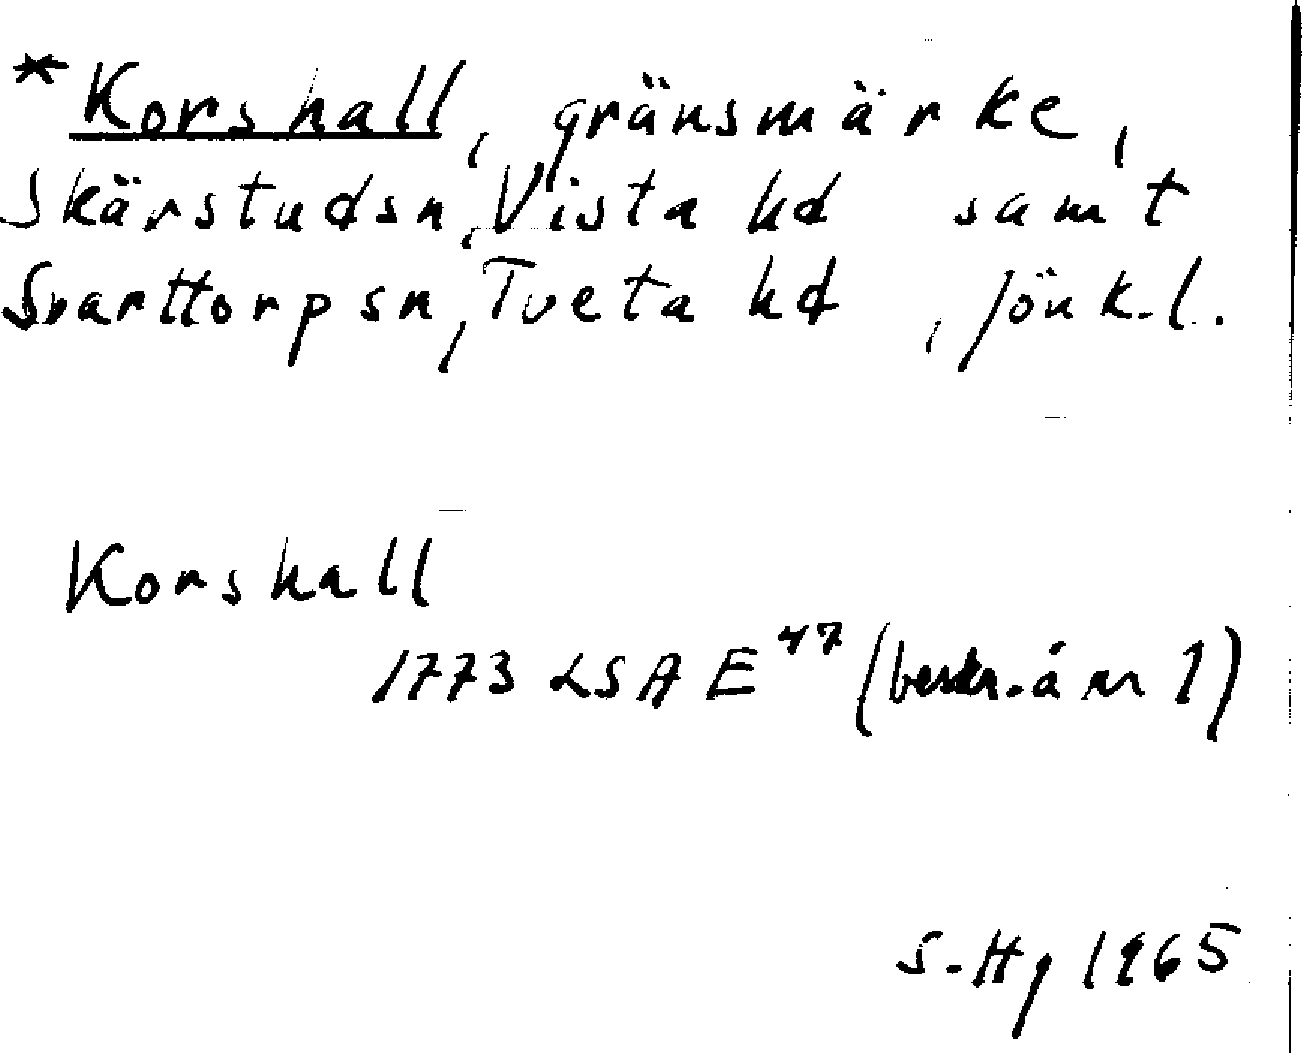 *Korshall, gränsmärke,
Skärstad sn, Vista hd samt
Svarttorp sn, Tveta hd, Jönk. l.
Korshall
1773 LSA E 47 (beskr. å nr 1)
S. Hg 1965